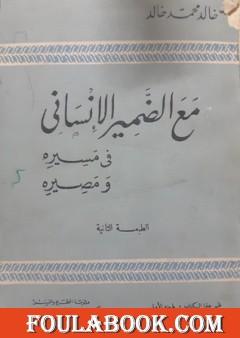 خالد محمد خالد
مع الضمير الإنسانى
فى مسيره
ومصيره
الطبعة الثانية
FOULABOOK.COM